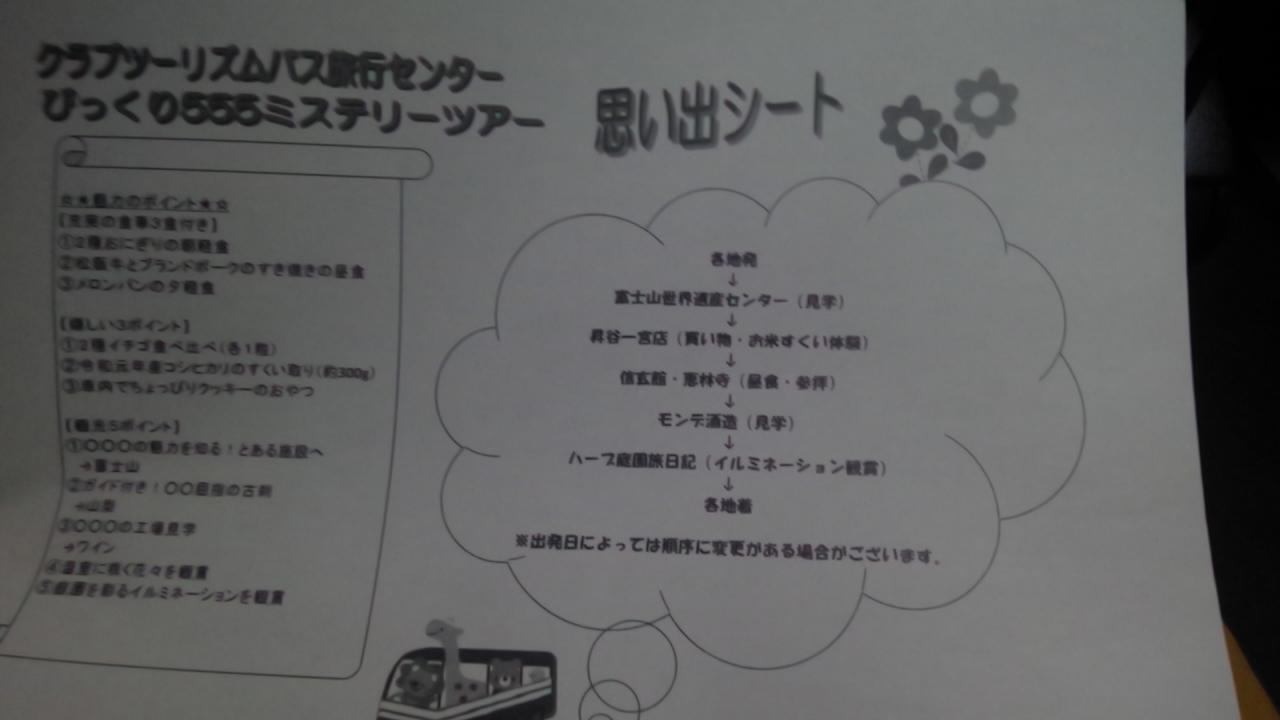 クラブツーリズムバス旅行センター
びっくり555ミステリーツアー
思い出シート
☆★魅力のポイント★☆
【充実の食事3食付き】
①2種おにぎりの朝軽食
②松阪牛とブランドポークのすき焼きの昼食
③メロンパンの夕軽食
【嬉しい3ポイント】
①2種イチゴ食べ比べ(各1粒)
②令和元年産コシヒカリのすくい取り(約300g)
③車内でちょっぴりクッキーのおやつ
【観光5ポイント】
①〇〇〇の魅力を知る！とある施設へ
→富士山
②ガイド付き！〇〇屈指の古刹
→山梨
③〇〇〇の工場見学
→ワイン
④温室に咲く花々を観賞
⑤庭園を彩るイルミネーションを観賞
各地発
↓
富士山世界遺産センター（見学）
↓
昇谷一宮店（買い物・お米すくい体験）
↓
信玄館・恵林寺（昼食・参拝）
↓
モンデ酒造（見学）
↓
ハーブ庭園旅日記（イルミネーション観賞）
↓
各地着
※出発日によっては順序に変更がある場合がございます。